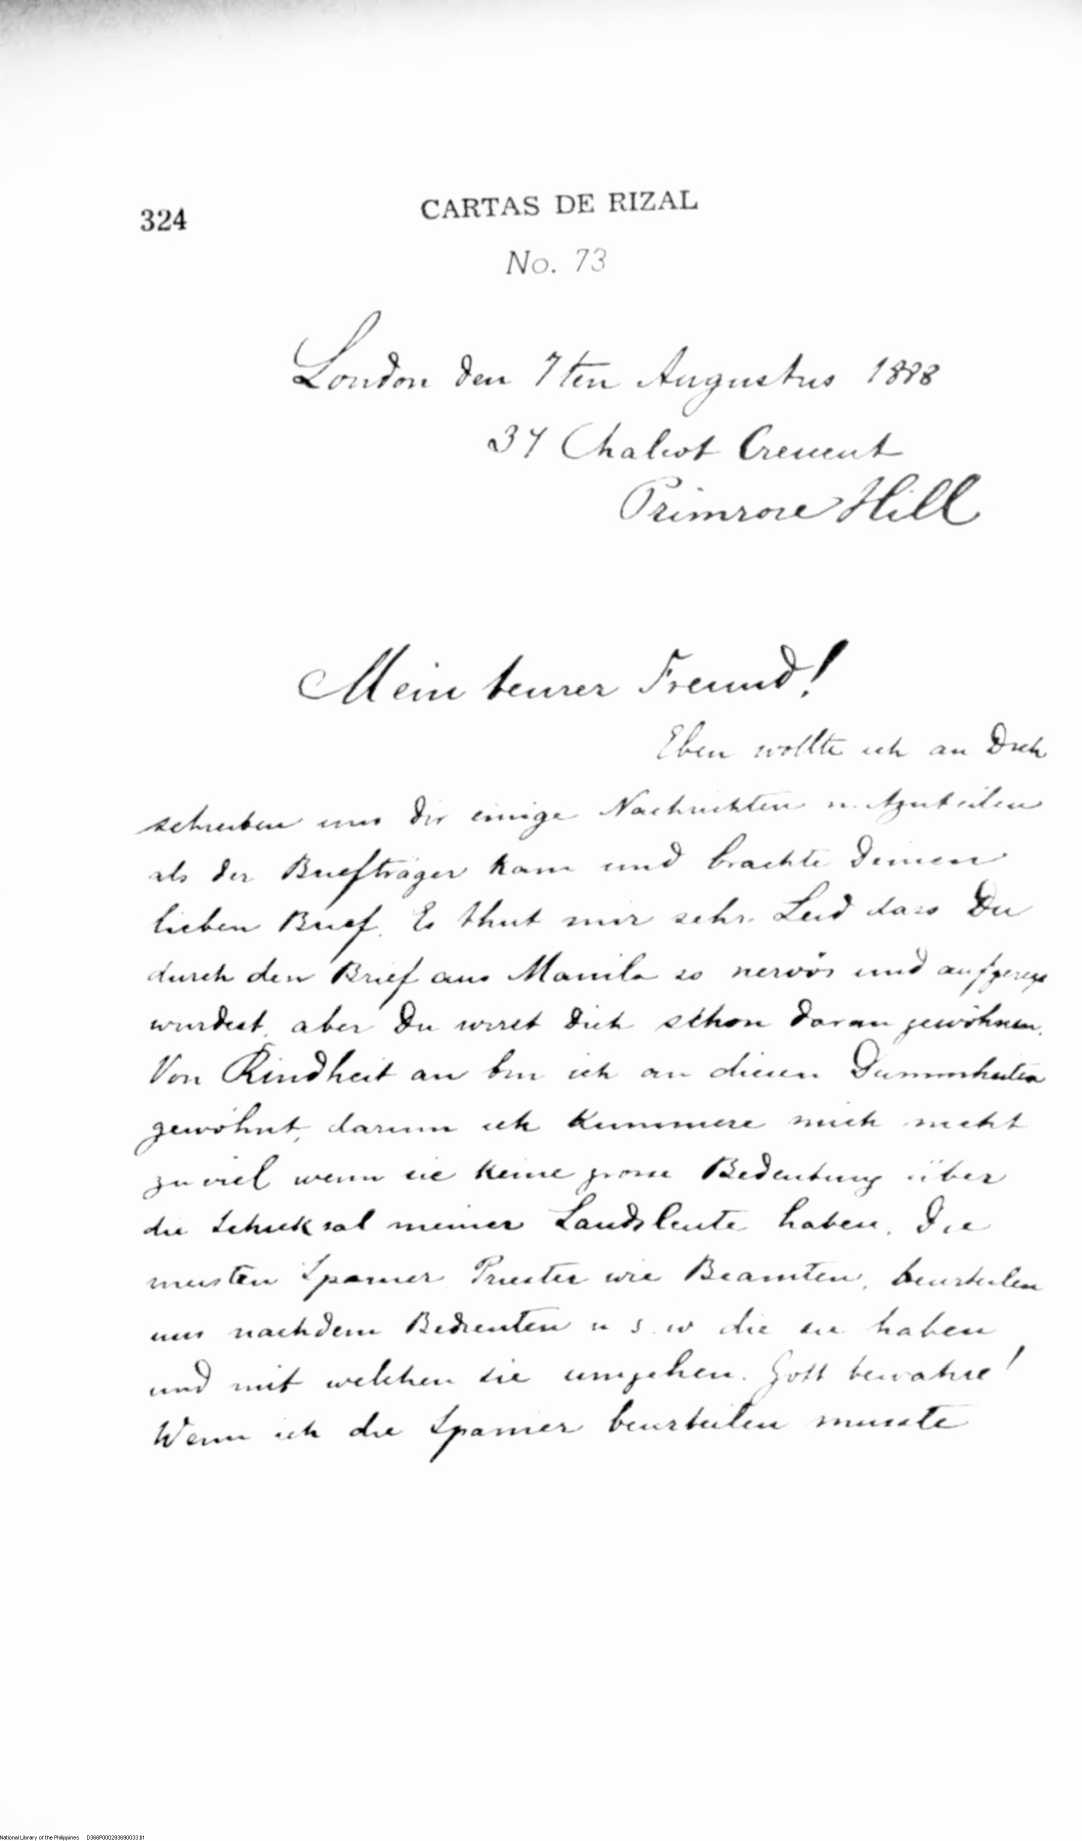 324
CARTAS DE RIZAL
No. 73
London den 7ten Augustus 1888
37 Chalcot Crescent
Primrose Hill
Mein teurer Freund!
Eben wollte ich an Dich
schreiben um dir einige Nachrichten mitzuteilen
als der Briefträger kam und brachte Deinen
lieben Brief. Es thut mir sehr Leid dass Du
durch den Brief aus Manila so nervös und aufgeregt
wurdest, aber Du wirst Dich schon daran gewöhnen.
Von Kindheit an bin ich an diesen Dummheiten
gewöhnt, darum ich kümmere mich nicht
zu viel wenn sie keine grosse Bedeutung über
die Schicksal meiner Landsleute haben. Die
meisten Spanier Priester wie Beamten, beurteilen
uns nach dem Bedienten u s. w die sie haben
und mit welchen sie umgehen. Gott bewahre!
Wenn ich die Spanier beurteilen musste
National Library of the Philippines